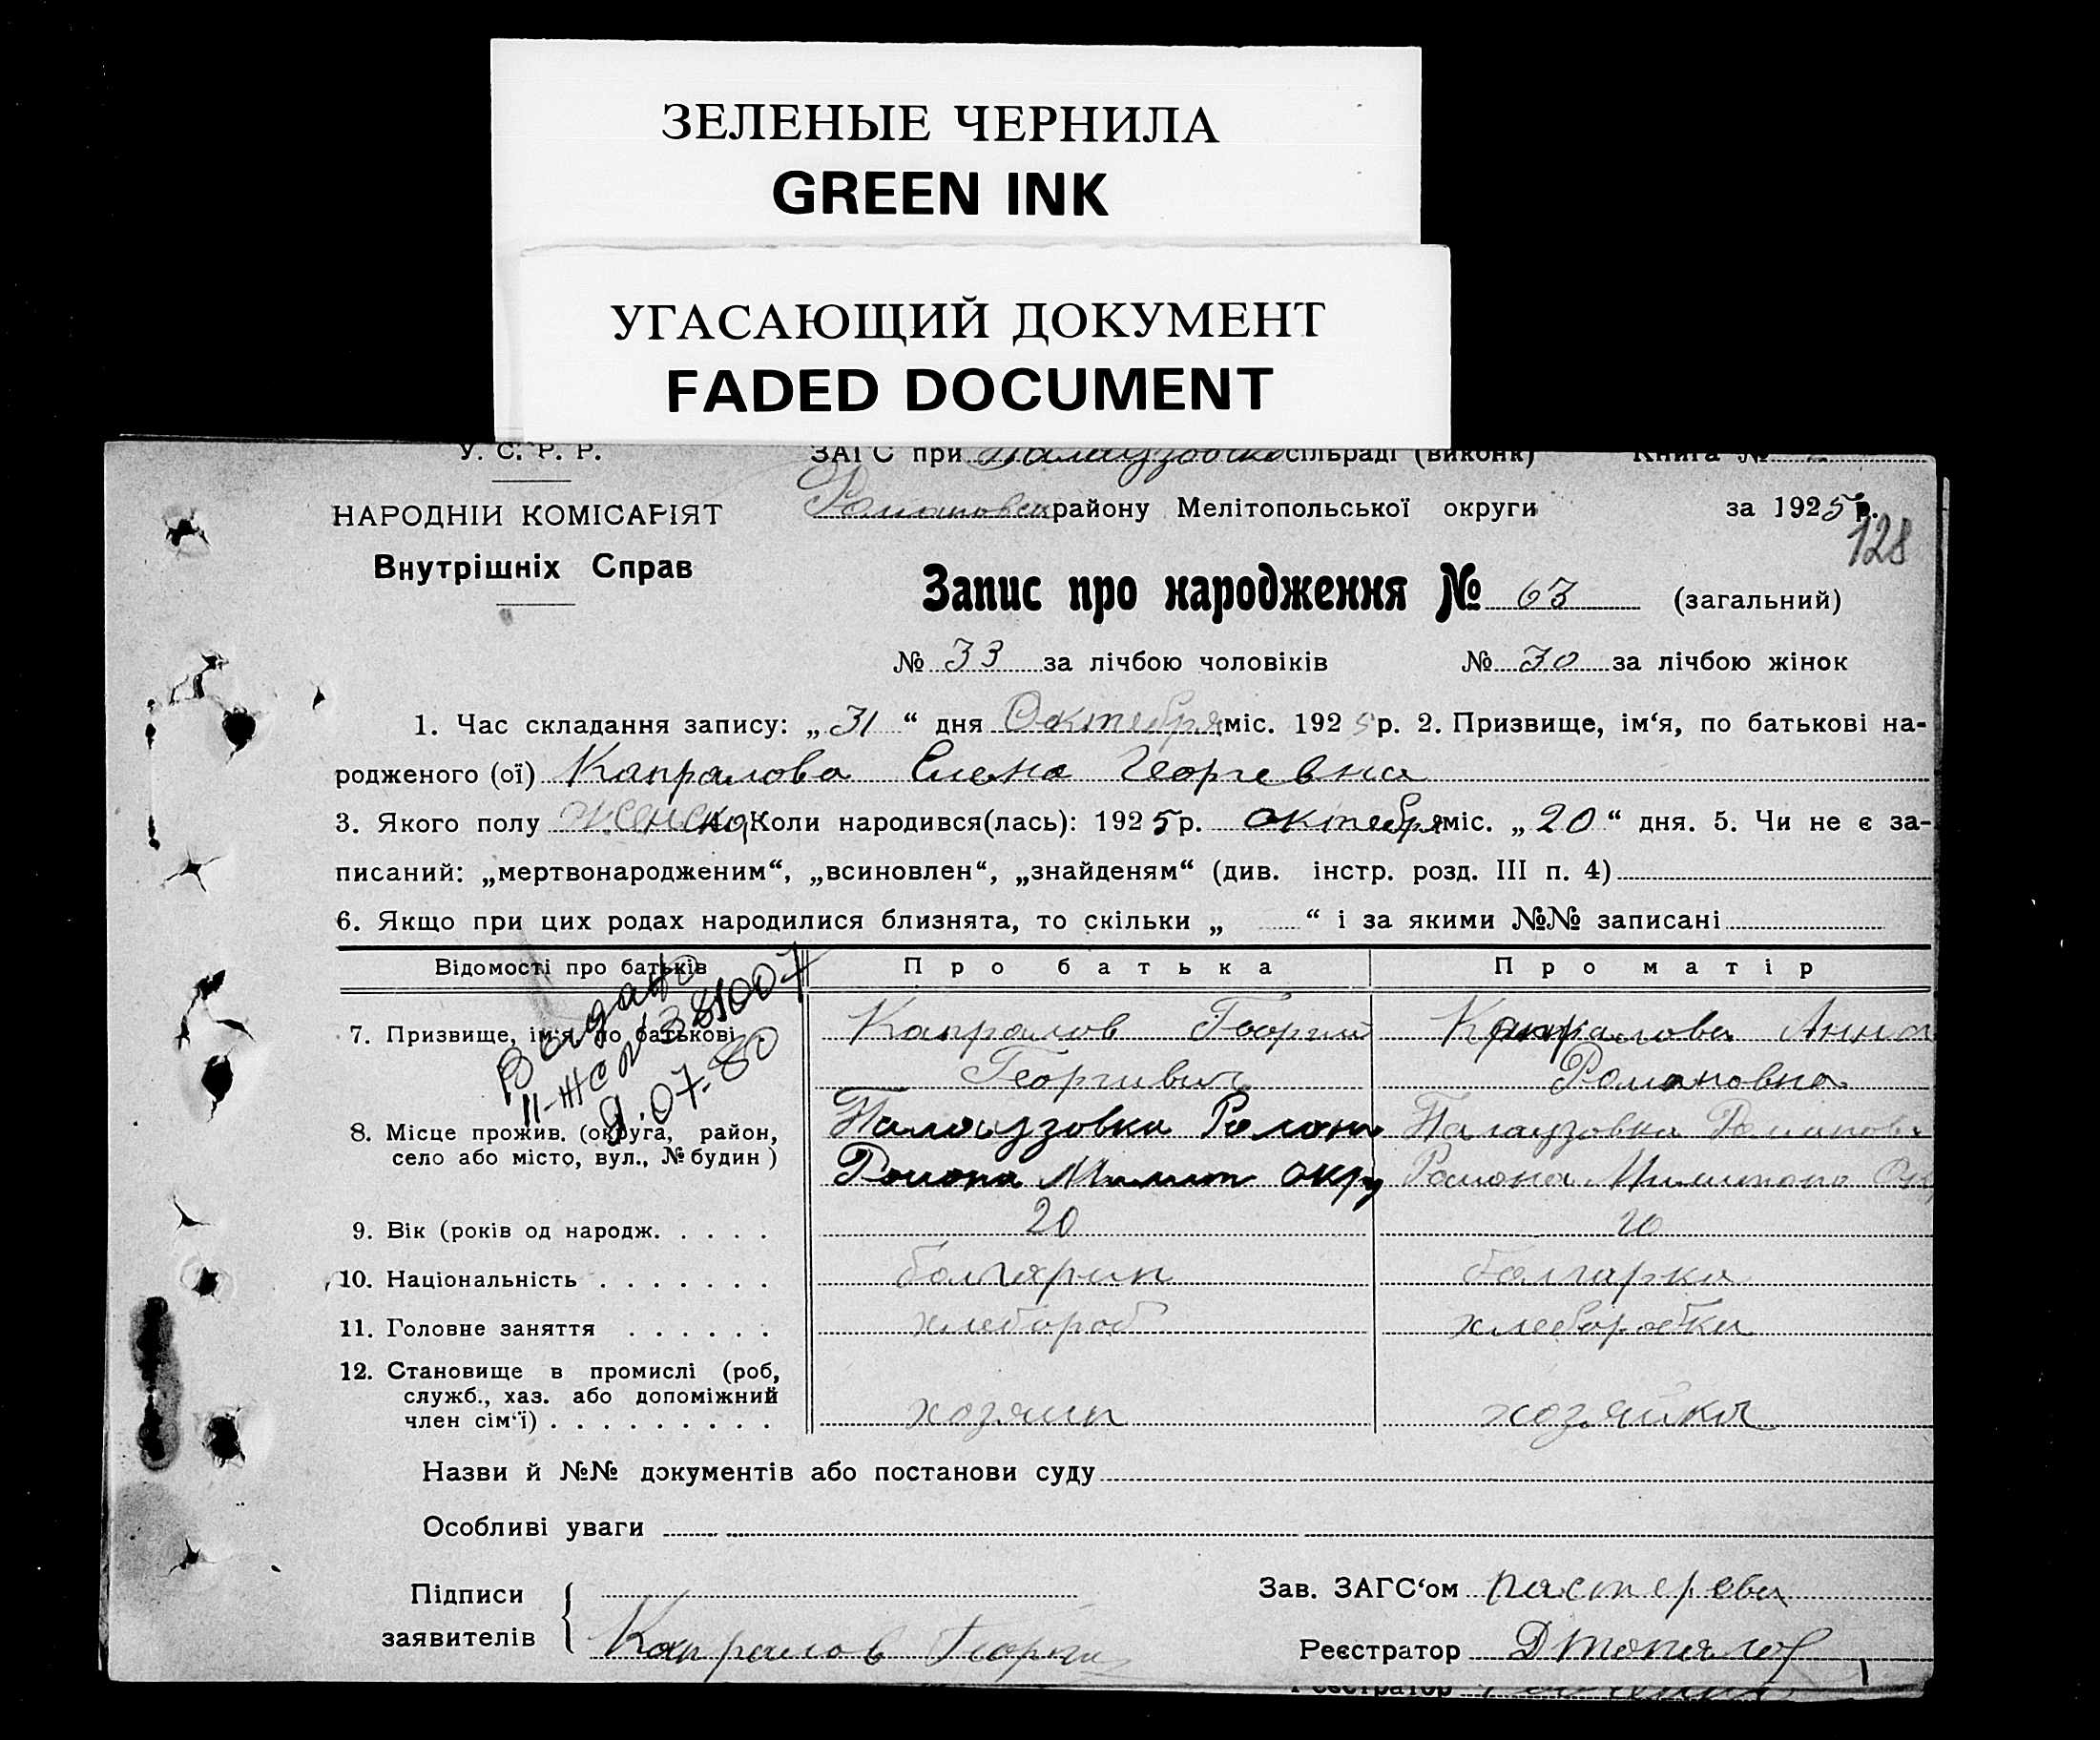 ЗЕЛЕНЫЕ ЧЕРНИЛА
GREEN INK
УГАСАЮЩИЙ ДОКУМЕНТ
FADED DOCUMENT
У. С. Р. Р.
ЗАГС при Палаузовско сільраді (виконк) Книга №
НАРОДНІЙ КОМІСАРІЯТ
Романовск району Мелітопольської округи за 1925 р.
128
Внутрішніх Справ
Запис про народження № 63 (загальний)
№ 33 за лічбою чоловіків № 30 за лічбою жінок
1. Час складання запису: „31“ дня Октебря міс. 1925 р. 2. Призвище, ім‘я, по батькові на-
родженого (ої) Капралова Елена Георгевна
3. Якого полу женска 4. Коли народився(лась): 1925 р. октебря міс. „20“ дня. 5. Чи не є за-
писаний: „мертвонародженим“, „всиновлен“, „знайденям“ (див. інстр. розд. III п. 4)
6. Якщо при цих родах народилися близнята, то скільки „ “ і за якими №№ записані
Відомості про батьків Про батька Про матір
Видано
II-ЖС № 381007
9.07.80
7. Призвище, ім‘я, по батькові Капралов Георгий Капралова Анна
Георгивич Романовна
8. Місце прожив. (округа, район, Палаузовка Роман Палаузовка Романов
село або місто, вул., № будин) Район Милит окру Района Милитопо Ок
9. Вік (років од народж. 20 20
10. Національність болгарин болгарка
11. Головне заняття хлебороб хлеборобка
12. Становище в промислі (роб,
служб., хаз. або допоміжний
член сім‘ї) хозяин хозяйка
Назви й №№ документів або постанови суду
Особливі уваги
Підписи Зав. ЗАГС‘ом
заявителів Капралов Георги Реєстратор Д Топалов
Реєстратор